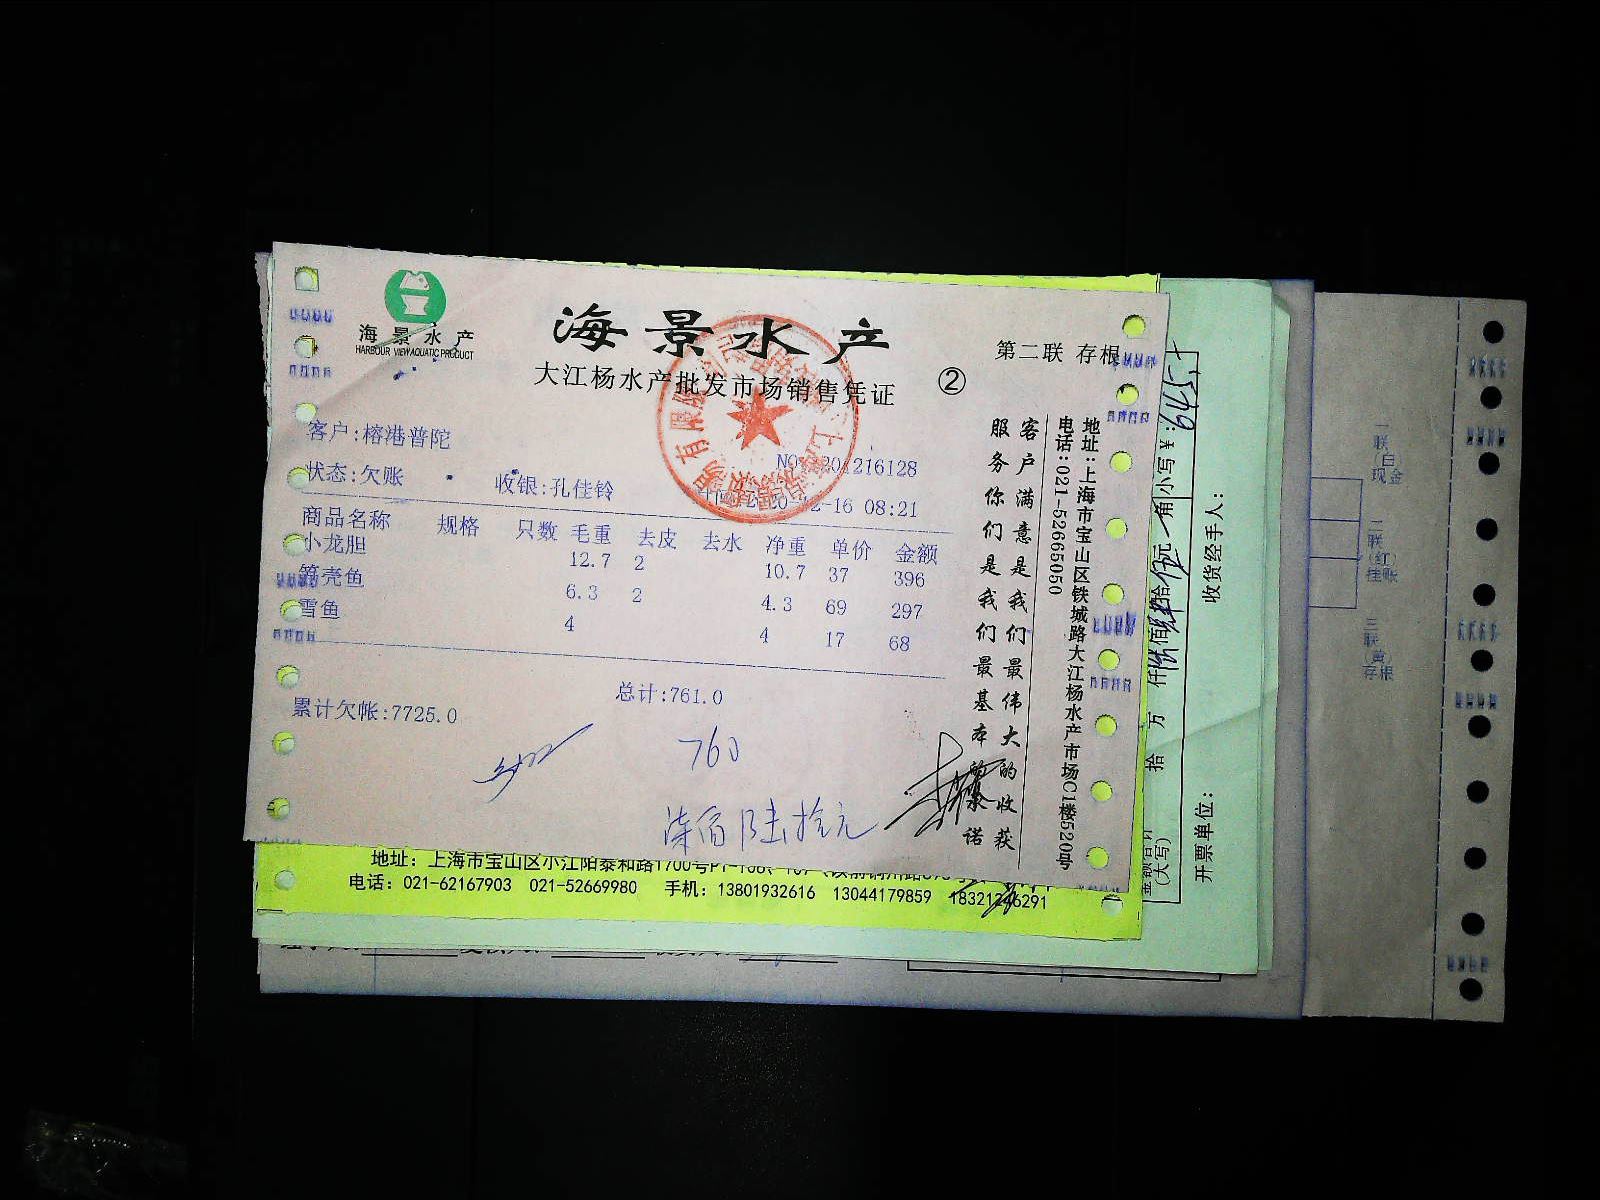 海景水产
HARBOUR VIEW AQUATIC PRODUCT
海景水产
大江杨水产批发市场销售凭证
②
第二联 存根
客户:榕港普陀
状态:欠账
收银:孔佳铃
-16 08:21
商品名称 规格 只数 毛重 去皮 去水 净重 单价 金额
小龙胆 12.7 2 10.7 37 396
笋壳鱼 6.3 2 4.3 69 297
雪鱼 4 4 17 68
总计:761.0
累计欠帐:7725.0
760
柒佰陆拾元
客户满意是我们最伟大的收获
服务你们是我们最基本的承诺
地址:上海市宝山区铁城路大江杨水产市场C1楼520号
电话:021-52665050
电话：021-62167903 021-52669980 手机：13801932616 13044179859
小写¥：
(大写)
拾 万 仟
收货经手人：
开票单位：
一联(白)现金
二联(红)挂账
三联(黄)存根